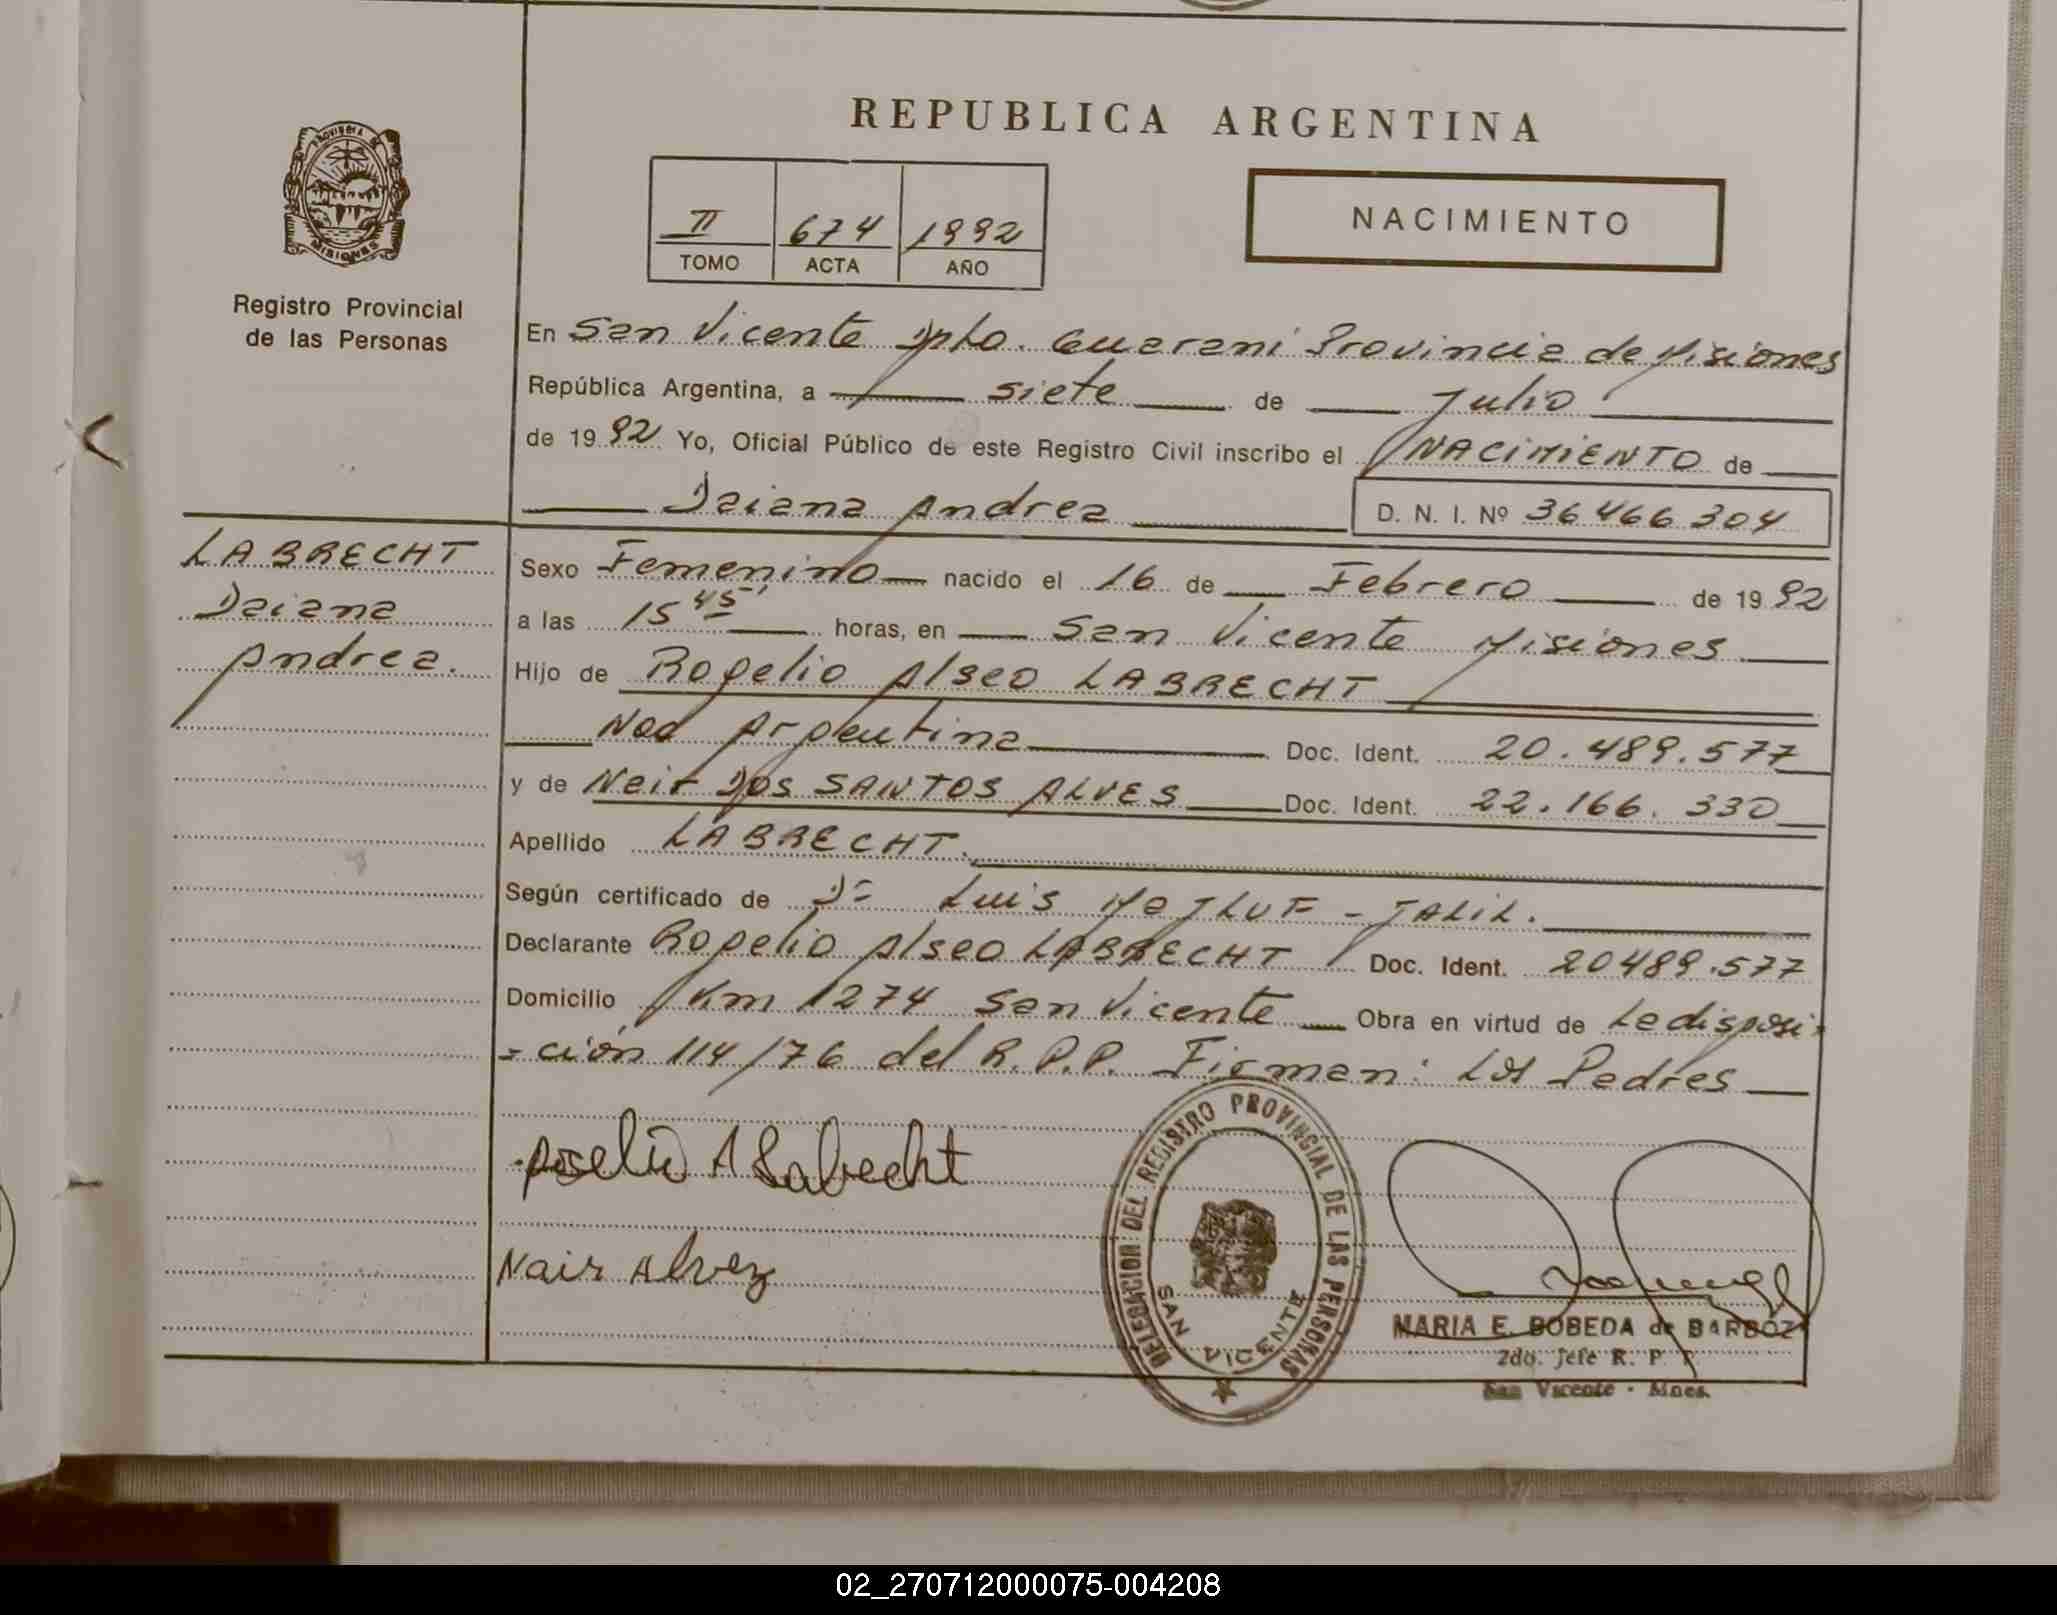 REPUBLICA ARGENTINA
PROVINCIA DE
MISIONES
Registro Provincial
de las Personas
II 674 1992
TOMO ACTA AÑO
NACIMIENTO
En San Vicente Dpto. Guarani Provincia de Misiones
República Argentina, a siete de Julio
de 1992 Yo, Oficial Público de este Registro Civil inscribo el NACIMIENTO de
Daiana Andrea D. N. I. Nº 36466304
LABRECHT
Daiana
Andrea.
Sexo Femenino nacido el 16 de Febrero de 1992
a las 15 45' horas, en San Vicente Misiones
Hijo de Rogelio Alseo LABRECHT
Nac Argentina Doc. Ident. 20.489.577
y de Neir Dos SANTOS ALVES Doc. Ident. 22.166.330
Apellido LABRECHT.
Según certificado de Dr Luis - JALIL.
Declarante Rogelio Alseo LABRECHT Doc. Ident. 20489.577
Domicilio Km 1274 San Vicente Obra en virtud de La disposi-
-ción 114/76 del R.P.P. Firman: Los Padres
A Labrecht
Nair Alvez
DELEGACION DEL REGISTRO PROVINCIAL DE LAS PERSONAS
SAN VICENTE
MARIA E. BOBEDA de BARBOZA
2do. Jefe R. P. P.
San Vicente - Mnes.
02_270712000075-004208